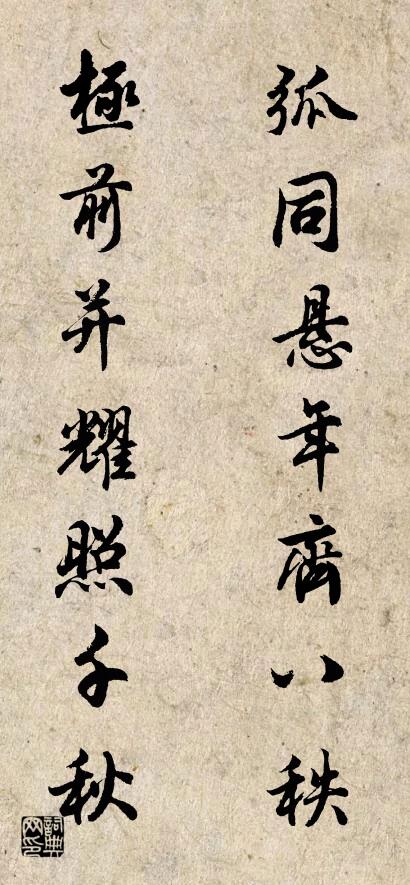 弧同悬年齊八秩
極前并耀照千秋
詞典网印